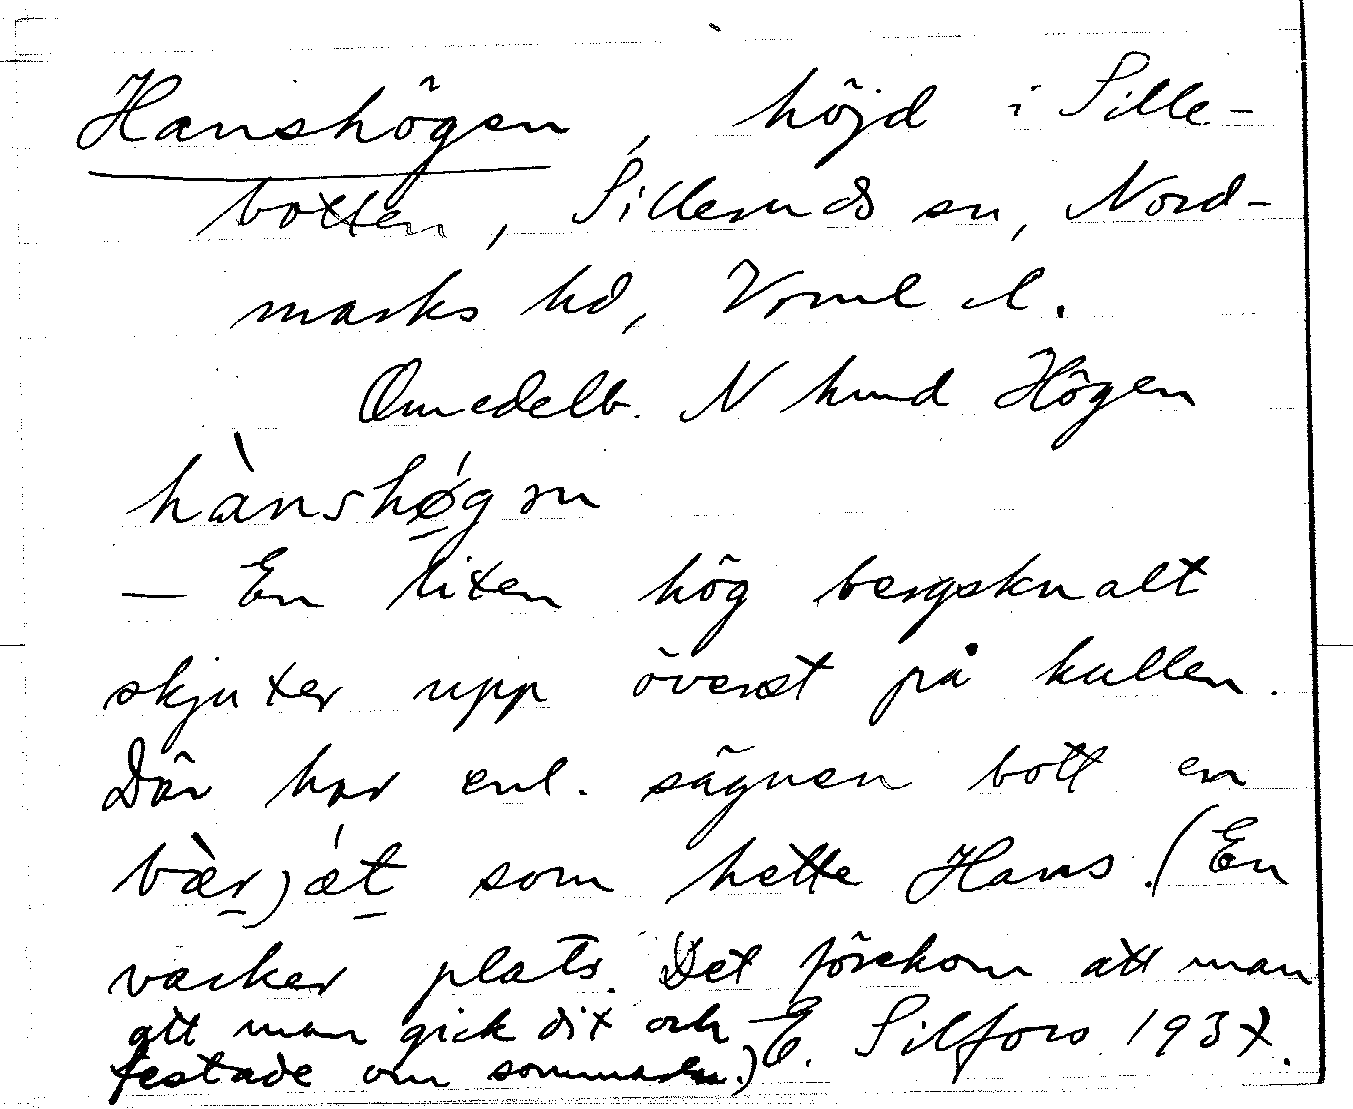 Hanshögen, höjd i Sille-
botten, Silleruds sn, Nord-
marks hd, Vrml l.
Omedelb. N hmd Högen
hànshǿ̱gṇ
— En liten hög bergsknalt
skjuter upp överst på kullen.
Där har enl. sägnen bott en
bær)ǽt som hette Hans. (En
vacker plats. Det förekom att man
att man gick dit och
festade om sommaren.) E. Silfors 1937.